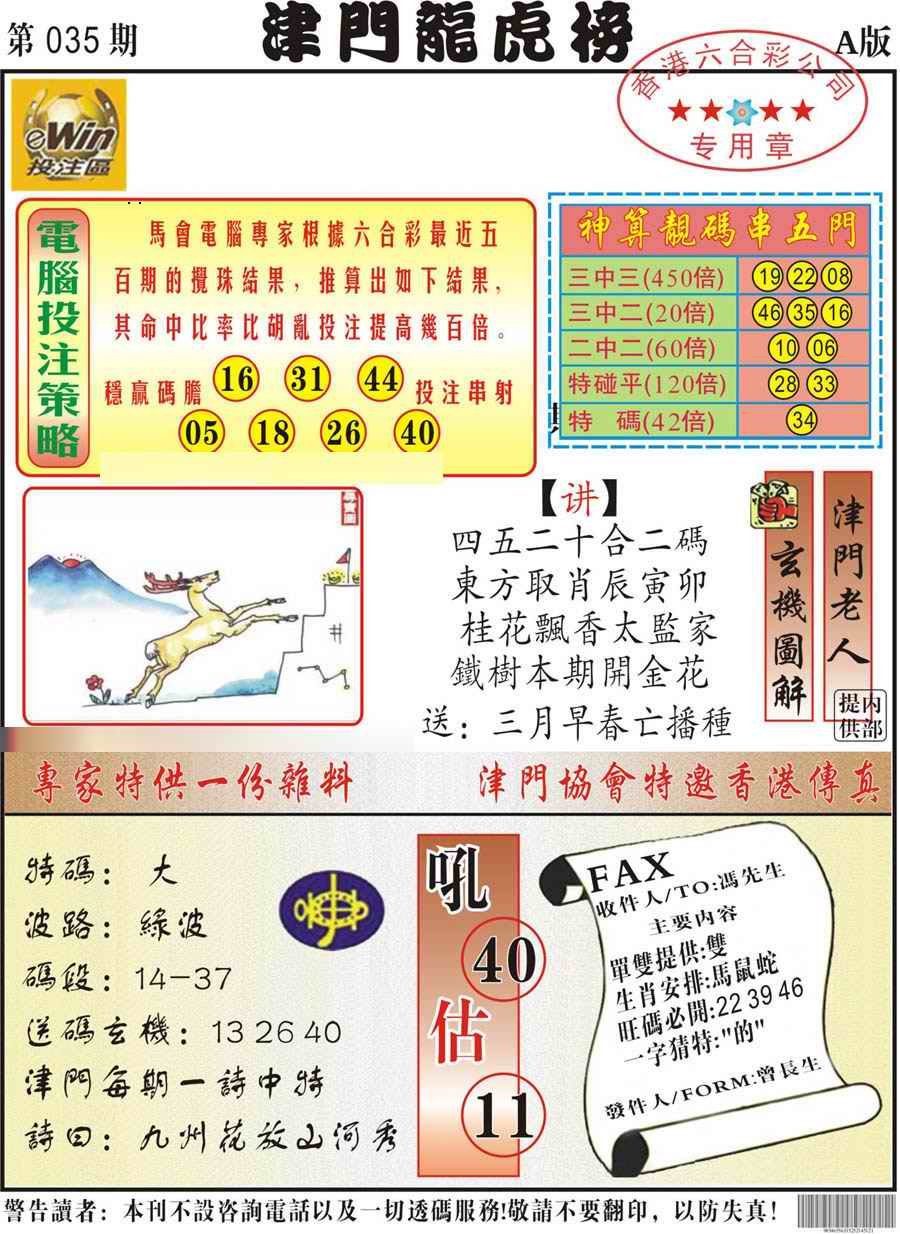 第 035 期
津門龍虎榜
A版
香港六合彩公司
专用章
eWin
投注區
電腦投注策略
馬會電腦專家根據六合彩最近五
百期的攪珠結果，推算出如下結果，
其命中比率比胡亂投注提高幾百倍。
穩贏碼膽 16 31 44 投注串射
05 18 26 40
神算靚碼串五門
三中三(450倍) 19 22 08
三中二(20倍) 46 35 16
二中二(60倍) 10 06
特碰平(120倍) 28 33
特 碼(42倍) 34
【讲】
四五二十合二碼
東方取肖辰寅卯
桂花飄香太監家
鐵樹本期開金花
送：三月早春亡播種
玄機圖解
津門老人
内部提供
專家特供一份雜料
津門協會特邀香港傳真
特碼：大
波路：綠波
碼段：14-37
送碼玄機：13 26 40
津門每期一詩中特
詩曰：九州花放山河秀
吼
40
估
11
FAX
收件人/TO:馮先生
主要内容
單雙提供:雙
生肖安排:馬鼠蛇
旺碼必開:22 39 46
一字猜特:"的"
發件人/FORM:曾長生
警告讀者：本刊不設咨詢電話以及一切透碼服務!敬請不要翻印，以防失真!